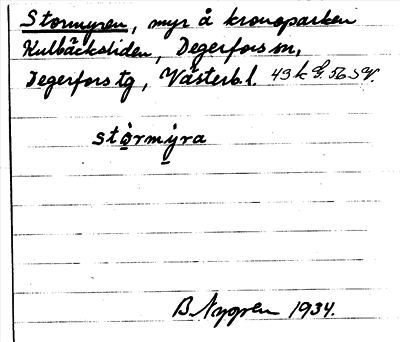 Stormyren, myr å kronoparken
Kulbäcksliden, Degerfors sn,
Degerfors tg, Västerb. l. 43 k
stòrmýra
B. Nygren 1934.